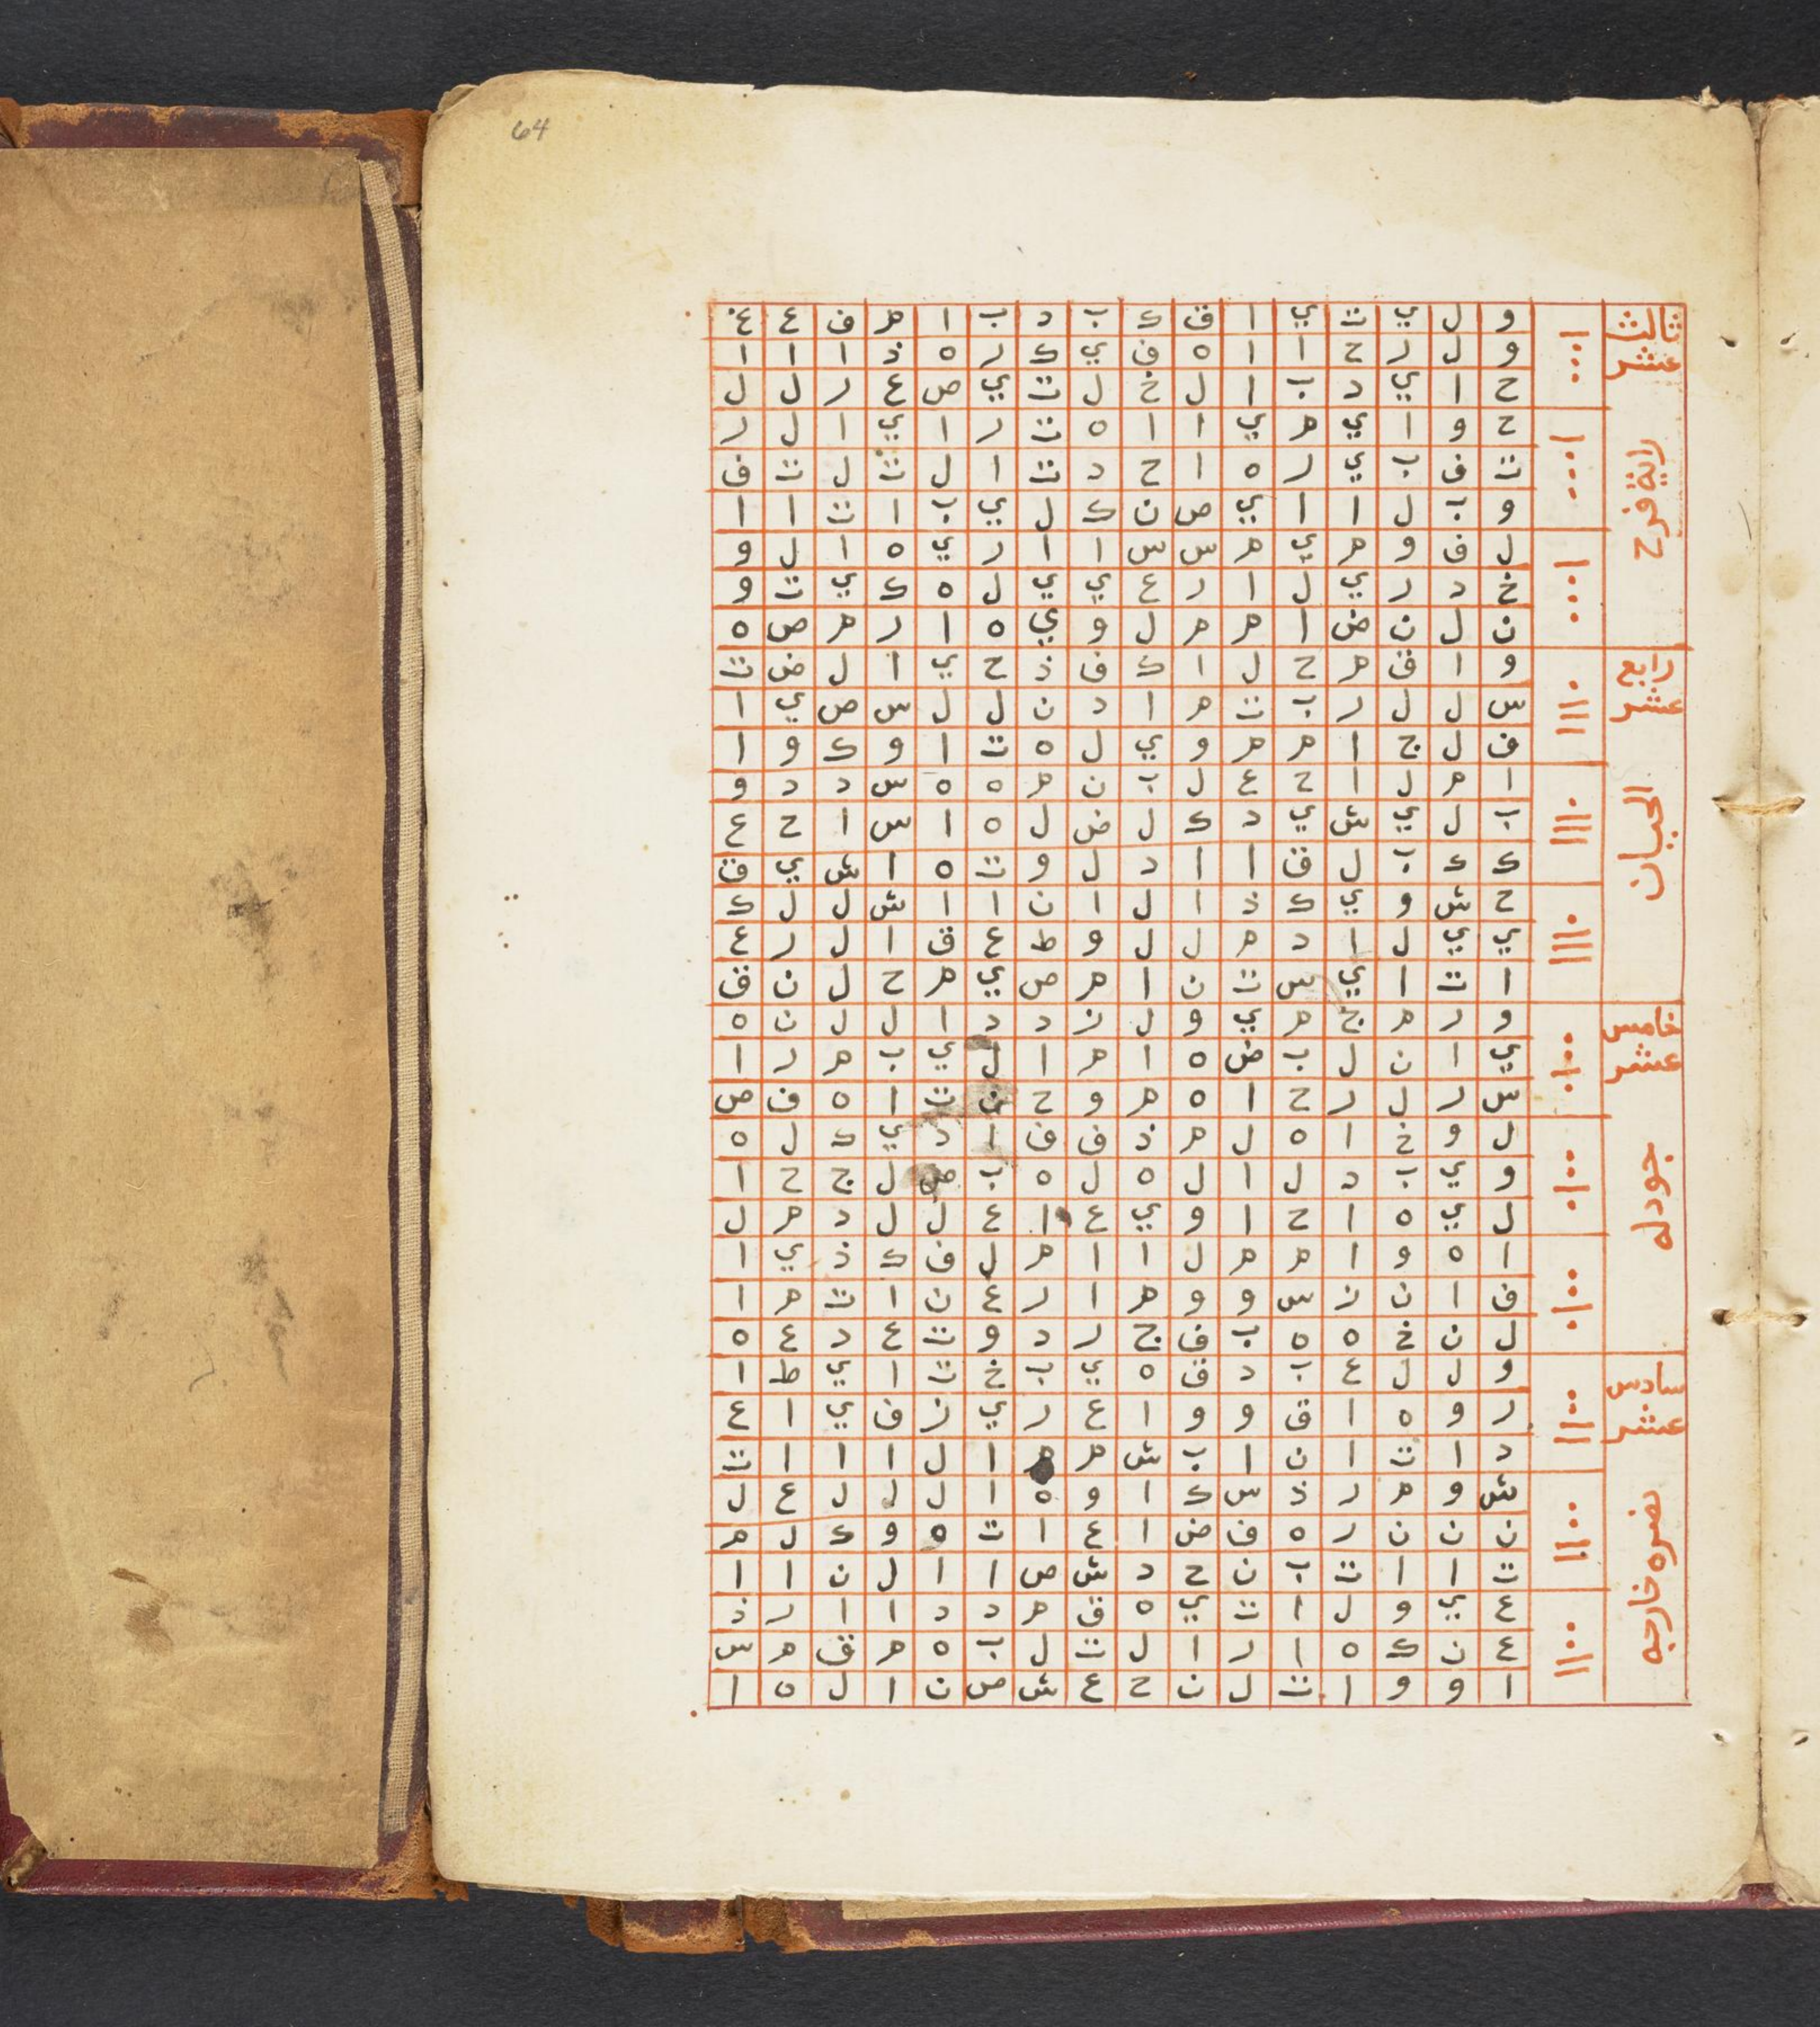 64
ثالث
عشر
راية فرح
و ل ي ت ي ا ق ك ب د ب ا م ف ع غ
و ل ر ح ا ا ه ف ي ك ر ه ذ ا ا ا
ح ا ي د ب ا ل خ ل ت ي ص ع ر ل ل
ح و ا ي م ي ا ا ه ت ر ا ي ا ل ر
ت ف ب ي ر ه ا ح د ت ا ل ت ل ت ف
و ب ل ا ا ي ص ن ك ل ي ب ا ت ا ا
ل ف و م ي م س س ا ا ر ي ه ا ل و
خ د ر ي ل ا ر ع ي ي ل ه ك ي ت و
ن ل ن ض ا م م ل و ي ه ا ر م ص ه
رابع
عشر
الحيان
و ا ق م ح ل ا ك ف ذ ح ي ا ل ض ت
س ل ل ر ب ت م ا د ن ل ل س ص ي ا
ف ل ج ا م م و ي ل ه ت ا و ك و ا
ا م ل ا ح ع ل ب ن م ه ه س د د و
ب ل ي ش ي د ك ل ض ل ه ا س ا ح ع
ك ك ب ل ق ا ا د ل و ت ه ا ش ي ق
ح ش و ي ك ذ ا ل ا ن ا ا ش ل ل ك
ي ي ل ا د م ل ل و ط ع ق ا ل ر ع
ا ت ا ي س ت ن ا م ص ي م ح ل ن ق
خامس
عشر
جودله
و ر م ج م ي و ل ز د د ا ل ل ن ه
ي ا ن ل ب ض ه ا م ا ل ي ب م ر ا
س ر ل ر ح ا ه م و ح ن ت ا ه ف ص
ل و خ ا ه ل م ذ ف ف ا د ي ك ل ه
و ي ب د ل ا ل ه ل ه ب ص ل ج ح ا
ل ي ه ا ح ا و ي ع ا ع ل ل د م ل
ا ه و ا م م ل ا ا م ل ف ك ذ ي ا
ف ا ن ز س و و م ا ر ع ن ا ت م ا
ل ن خ ه ه ب ف ج ر د و ت ع د ع ه
سادس
عشر
نصره خارجه
و ل ل ع ب د ق ه ي ب خ ت ا ي ط ا
ر و ه ا ق و و ا ع ر ي ز ف ي ا ع
د ا ت ا ن ا ب ش م م ا ل ا ا ا ت
ش و م ر ذ س ك ا و ه ا ل ل ل ع ل
ن ن ن ر ه ف ض ا ع ا ت ه و ك ل م
ت ا ا ت ب ن ح د ش ص ا ا ل ن ا ا
ع ي و ل ا ت ي ه ق م د د ا ا ر ذ
ع ن ك ه ا ر ا ل ت ل ب ه م ق م س
ا و و ا ت ل ن ح ع ش ص ن ا ل ه ا